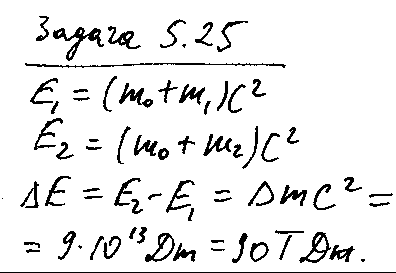 Задача 5.25
E₁ = (m₀+m₁)C²
E₂ = (m₀+m₂)C²
ΔE = E₂-E₁ = ΔmC² =
= 9·10¹³Дж = 90ТДж.